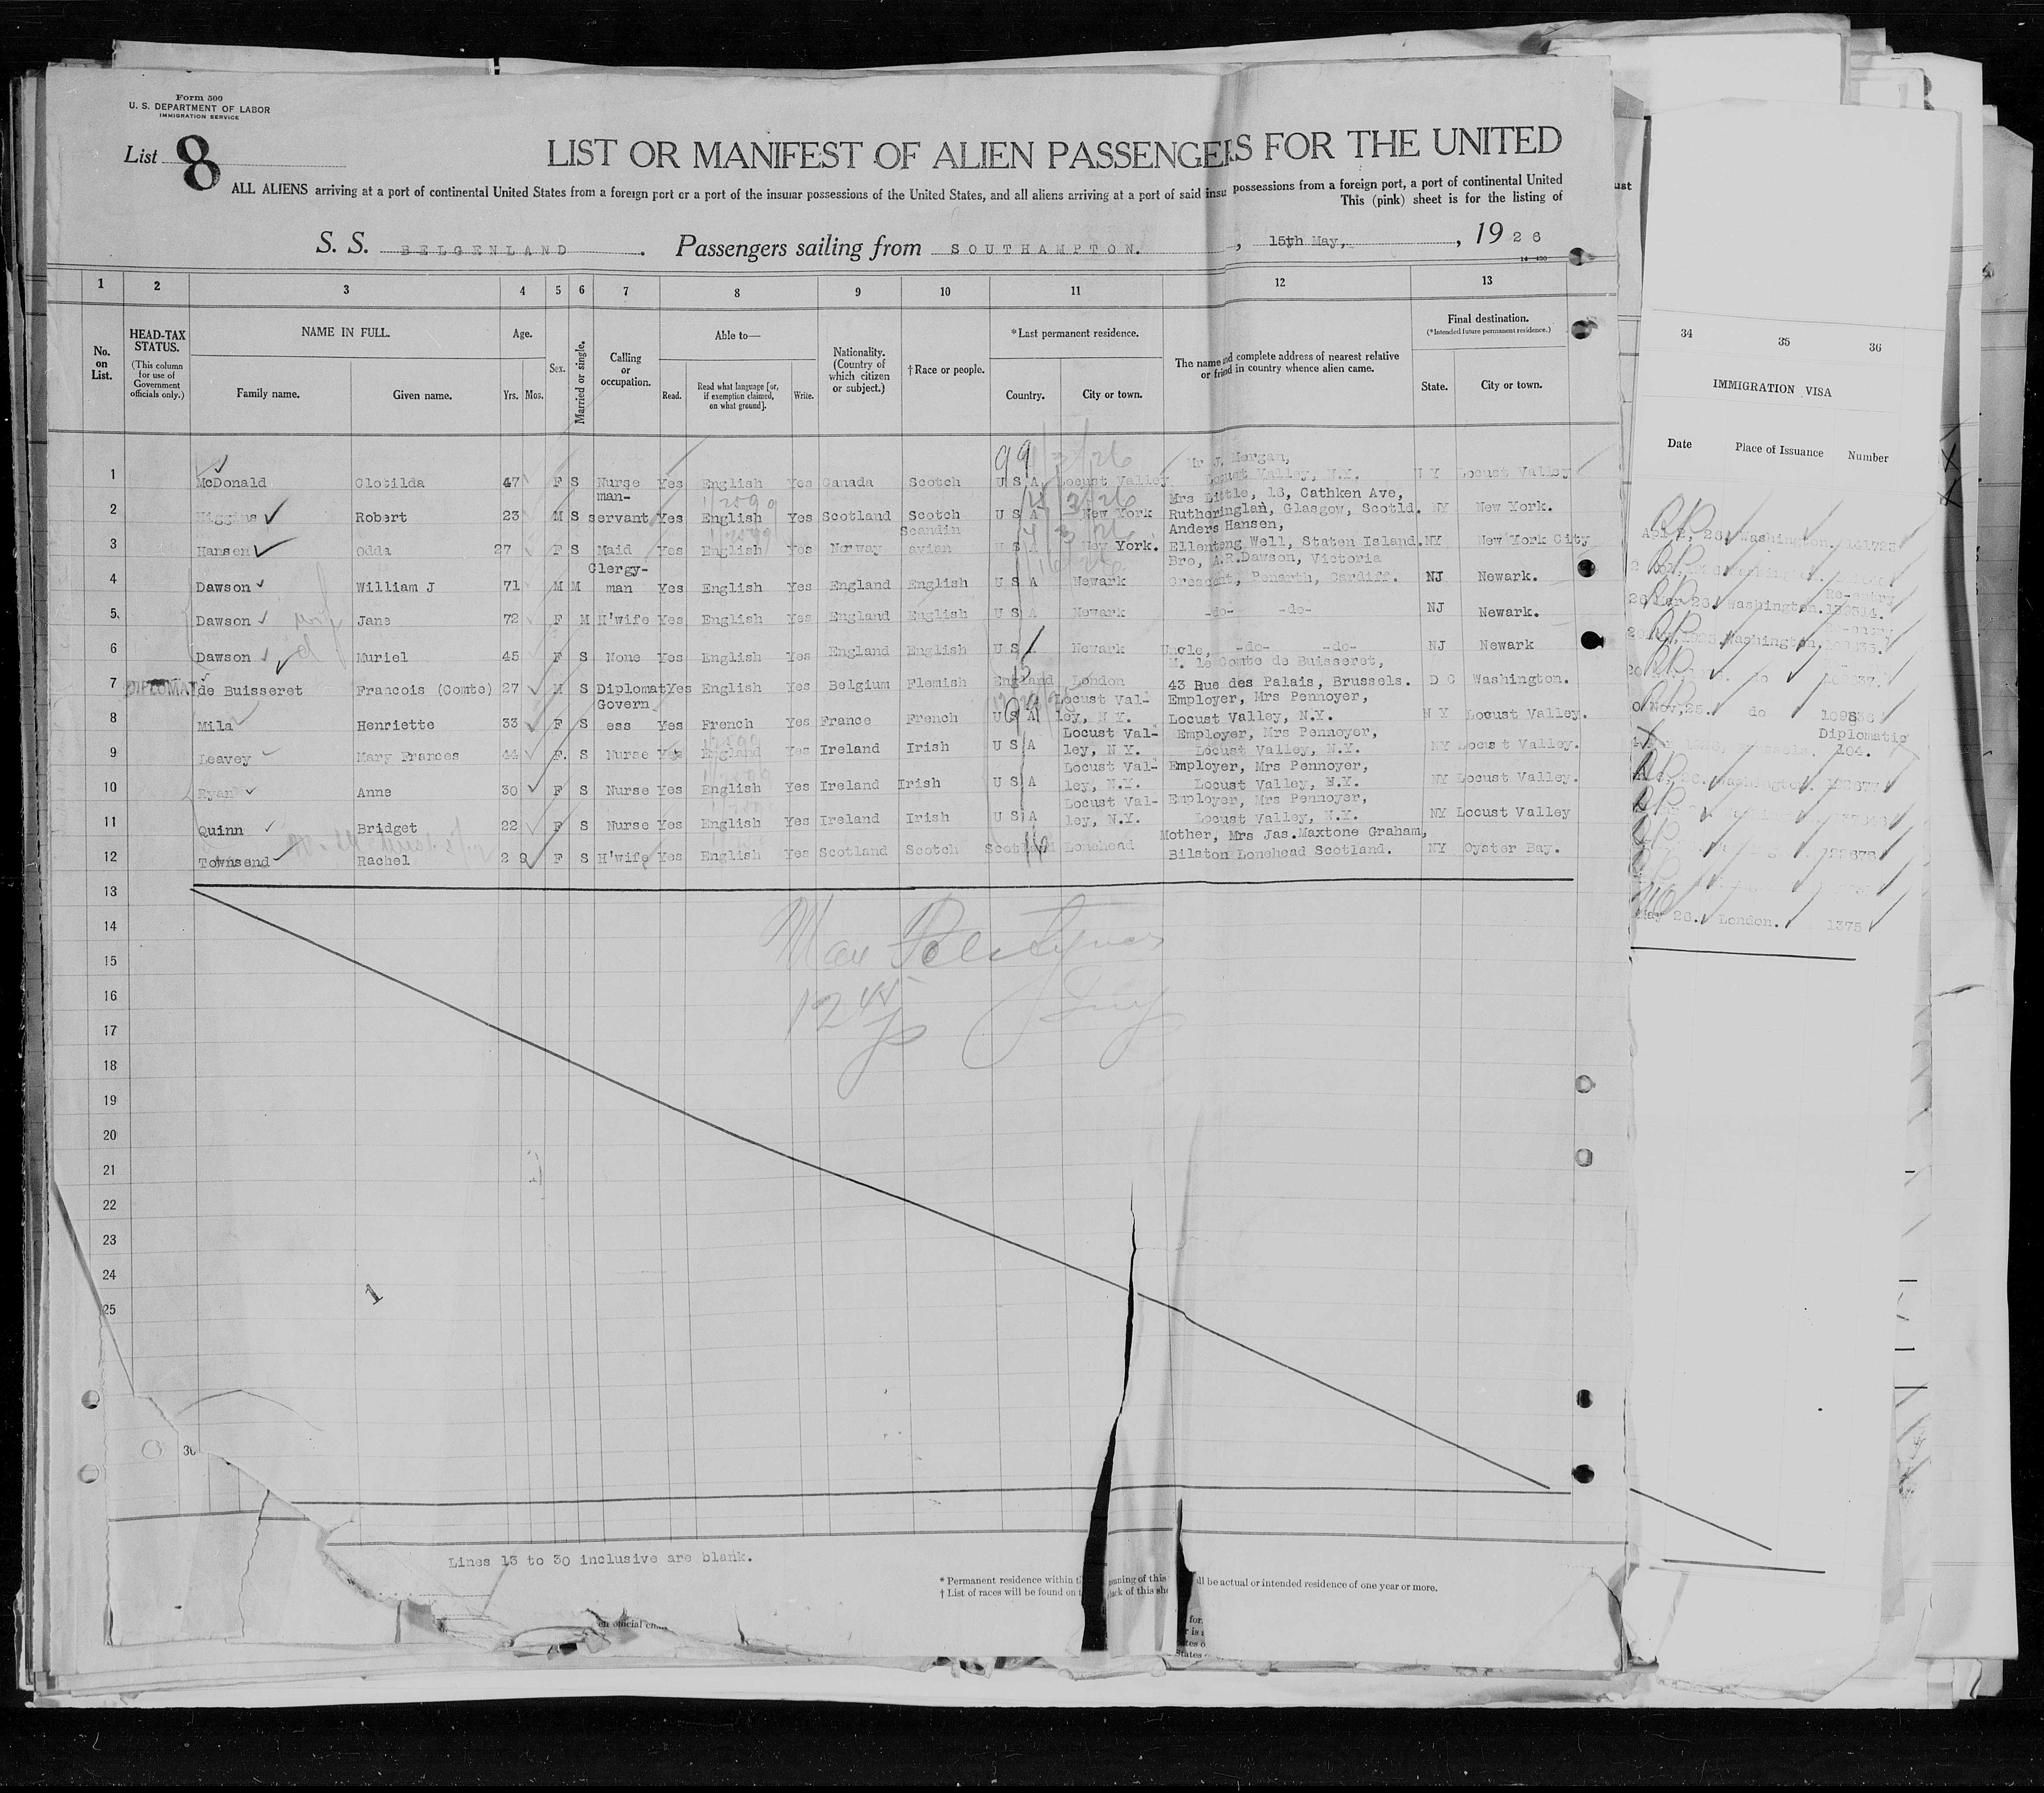 Form 500
U. S. DEPARTMENT OF LABOR
IMMIGRATION SERVICE
List 8
LIST OR MANIFEST OF ALIEN PASSENGERS FOR THE UNITED
ALL ALIENS arriving at a port of continental United States from a foreign port or a port of the insular possessions of the United States, and all aliens arriving at a port of said insu possessions from a foreign port, a port of continental United
This (pink) sheet is for the listing of
S. S. BELGENLAND. Passengers sailing from SOUTHAMPTON., 15th May, , 1926
1 2 3 4 5 6 7 8 9 10 11 12 13
No. on List.
HEAD-TAX STATUS.
(This column for use of Government officials only.)
NAME IN FULL.
Family name. Given name.
Age.
Yrs. Mos.
Sex.
Married or single.
Calling or occupation.
Able to—
Read. Read what language [or, if exemption claimed, on what ground]. Write.
Nationality. (Country of which citizen or subject.)
†Race or people.
*Last permanent residence.
Country. City or town.
The name and complete address of nearest relative or friend in country whence alien came.
Final destination.
(*Intended future permanent residence.)
State. City or town.
34 35 36
IMMIGRATION VISA
Date Place of Issuance Number
1 McDonald Clotilda 47 F S Nurse Yes English Yes Canada Scotch U S A Locust Valley Mr J. Morgan, Locust Valley, N.Y. N Y Locust Valley
2 Higgins Robert 23 M S man-servant Yes English Yes Scotland Scotch U S A New York Mrs Little, 18, Cathken Ave, Rutheringlan, Glasgow, Scotld. NY New York.
3 Hansen Odda 27 F S Maid Yes English Yes Norway Scandinavian U S A New York. Anders Hansen, Ellenteng Well, Staten Island. NY New York City
4 Dawson William J 71 M M Clergy-man Yes English Yes England English U S A Newark Bro, A.R.Dawson, Victoria Crescent, Penarth, Cardiff. NJ Newark.
5 Dawson Jane 72 F M H'wife Yes English Yes England English U S A Newark -do- -do- NJ Newark.
6 Dawson Muriel 45 F S None Yes English Yes England English U S A Newark Uncle, -do- -do- NJ Newark
7 DIPLOMAT de Buisseret Francois (Comte) 27 M S Diplomat Yes English Yes Belgium Flemish England London M. le Comte de Buisseret, 43 Rue des Palais, Brussels. D C Washington.
8 Mila Henriette 33 F S Governess Yes French Yes France French U S A Locust Valley, N Y. Employer, Mrs Pennoyer, Locust Valley, N.Y. N Y Locust Valley.
9 Leavey Mary Frances 44 F. S Nurse Yes England Yes Ireland Irish U S A Locust Valley, N Y. Employer, Mrs Pennoyer, Locust Valley, N.Y. NY Locust Valley.
10 Ryan Anne 30 F S Nurse Yes English Yes Ireland Irish U S A Locust Valley, N.Y. Employer, Mrs Pennoyer, Locust Valley, N.Y. NY Locust Valley.
11 Quinn Bridget 22 F S Nurse Yes English Yes Ireland Irish U S A Locust Valley, N.Y. Employer, Mrs Pennoyer, Locust Valley, N.Y. NY Locust Valley
12 Townsend Rachel 29 F S H'wife Yes English Yes Scotland Scotch Scotland Lonehead Mother, Mrs Jas.Maxtone Graham, Bilston Lonehead Scotland. NY Oyster Bay.
Washington.
Washington.
do
do
Diplomatic
104.
May 26. London. 1375
13
14
15
16
17
18
19
20
21
22
23
24
25
30
1
Lines 13 to 30 inclusive are blank.
* Permanent residence within all be actual or intended residence of one year or more.
† List of races will be found on back of this